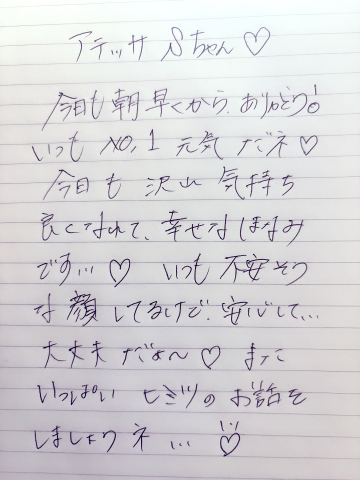 アテッサ Sちゃん♡
今日も朝早くから、ありがとう!
いつも NO,1 元気 だネ♡
今日も 沢山 気持ち
良くなれて、幸せな ほなみ
です…♡ いつも 不安そう
な 顔 してるけど、安心して…
大丈夫 だよ〜♡ また
いっぱい ヒミツの お話を
しましょうネ…♡